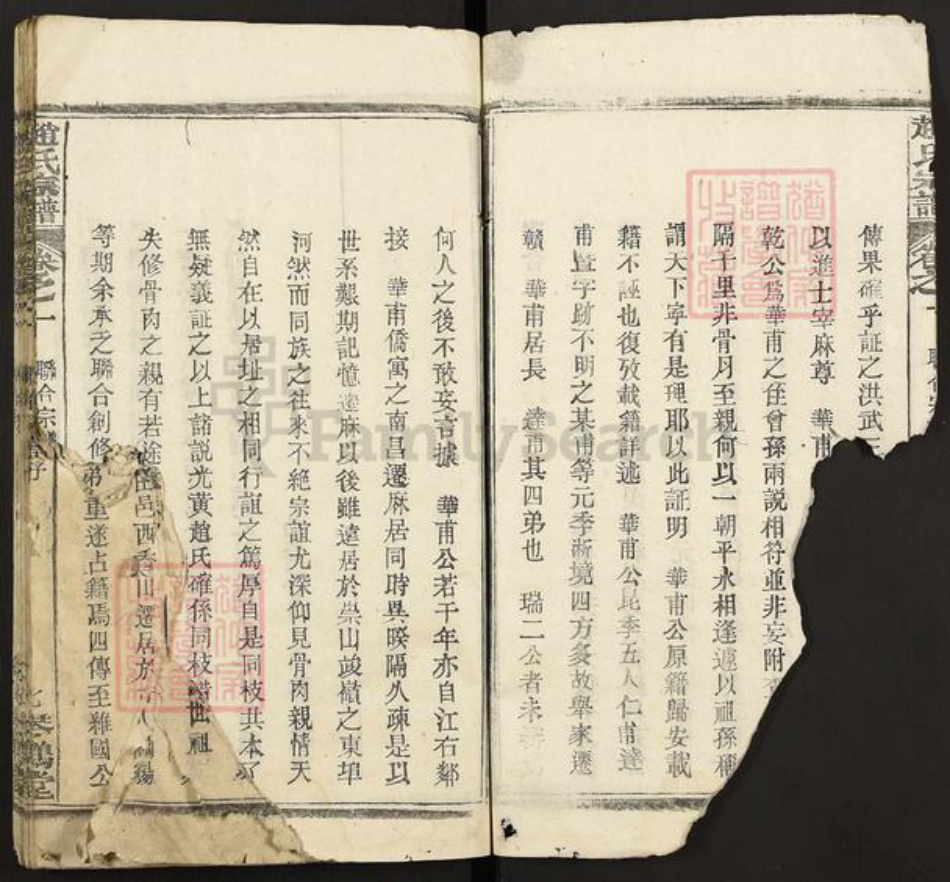 傳果確乎証之洪武三
以進士宰麻尊 華甫
乾公爲華甫之侄曾孫兩説相符並非妄附
隔千里非骨肉至親何以一朝平水相逢遽以祖孫稱
謂天下寜有是理耶以此証明 華甫公原籍歸安載
籍不誣也復攷載籍詳述 華甫公昆季五人仁甫達
甫暨字跡不明之某甫等元季淅境四方多故舉家遷
贛 華甫居長 達甫其四弟也 瑞二公者未
何人之後不敢妄言據 華甫公若干年亦自江右鄰
接 華甫僑寓之南昌遷麻居同時異暌隔久疎是以
世系艱期記憶遷麻以後雖遠居於崇山竣嶺之東埠
河然而同族之往來不絶宗誼尤深仰見骨肉親情天
然自在以居址之相同行誼之篤厚自是同枝共本了
無疑義証之以上諸説光黄趙氏確係同枝譜世祖
失修骨肉之親有若途 邑西 山遷居於
等期余承之聯合創修弟重遂占籍焉四傳至雜國公
趙氏宗譜 卷之一 聯合宗譜 七 琴鶴堂
趙氏宗譜
FamilySearch